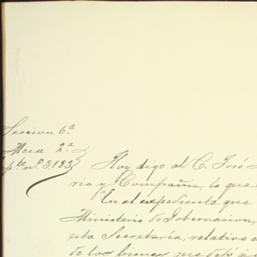 Seccion 6.ª
Mesa 2.ª
pte nº 3,193
Hoy digo al C. José
ria y Compañia, lo que
"En el expediente que
Ministerio de Gobernacion,
esta Secretaría, relativo a
de los bienes que dejó